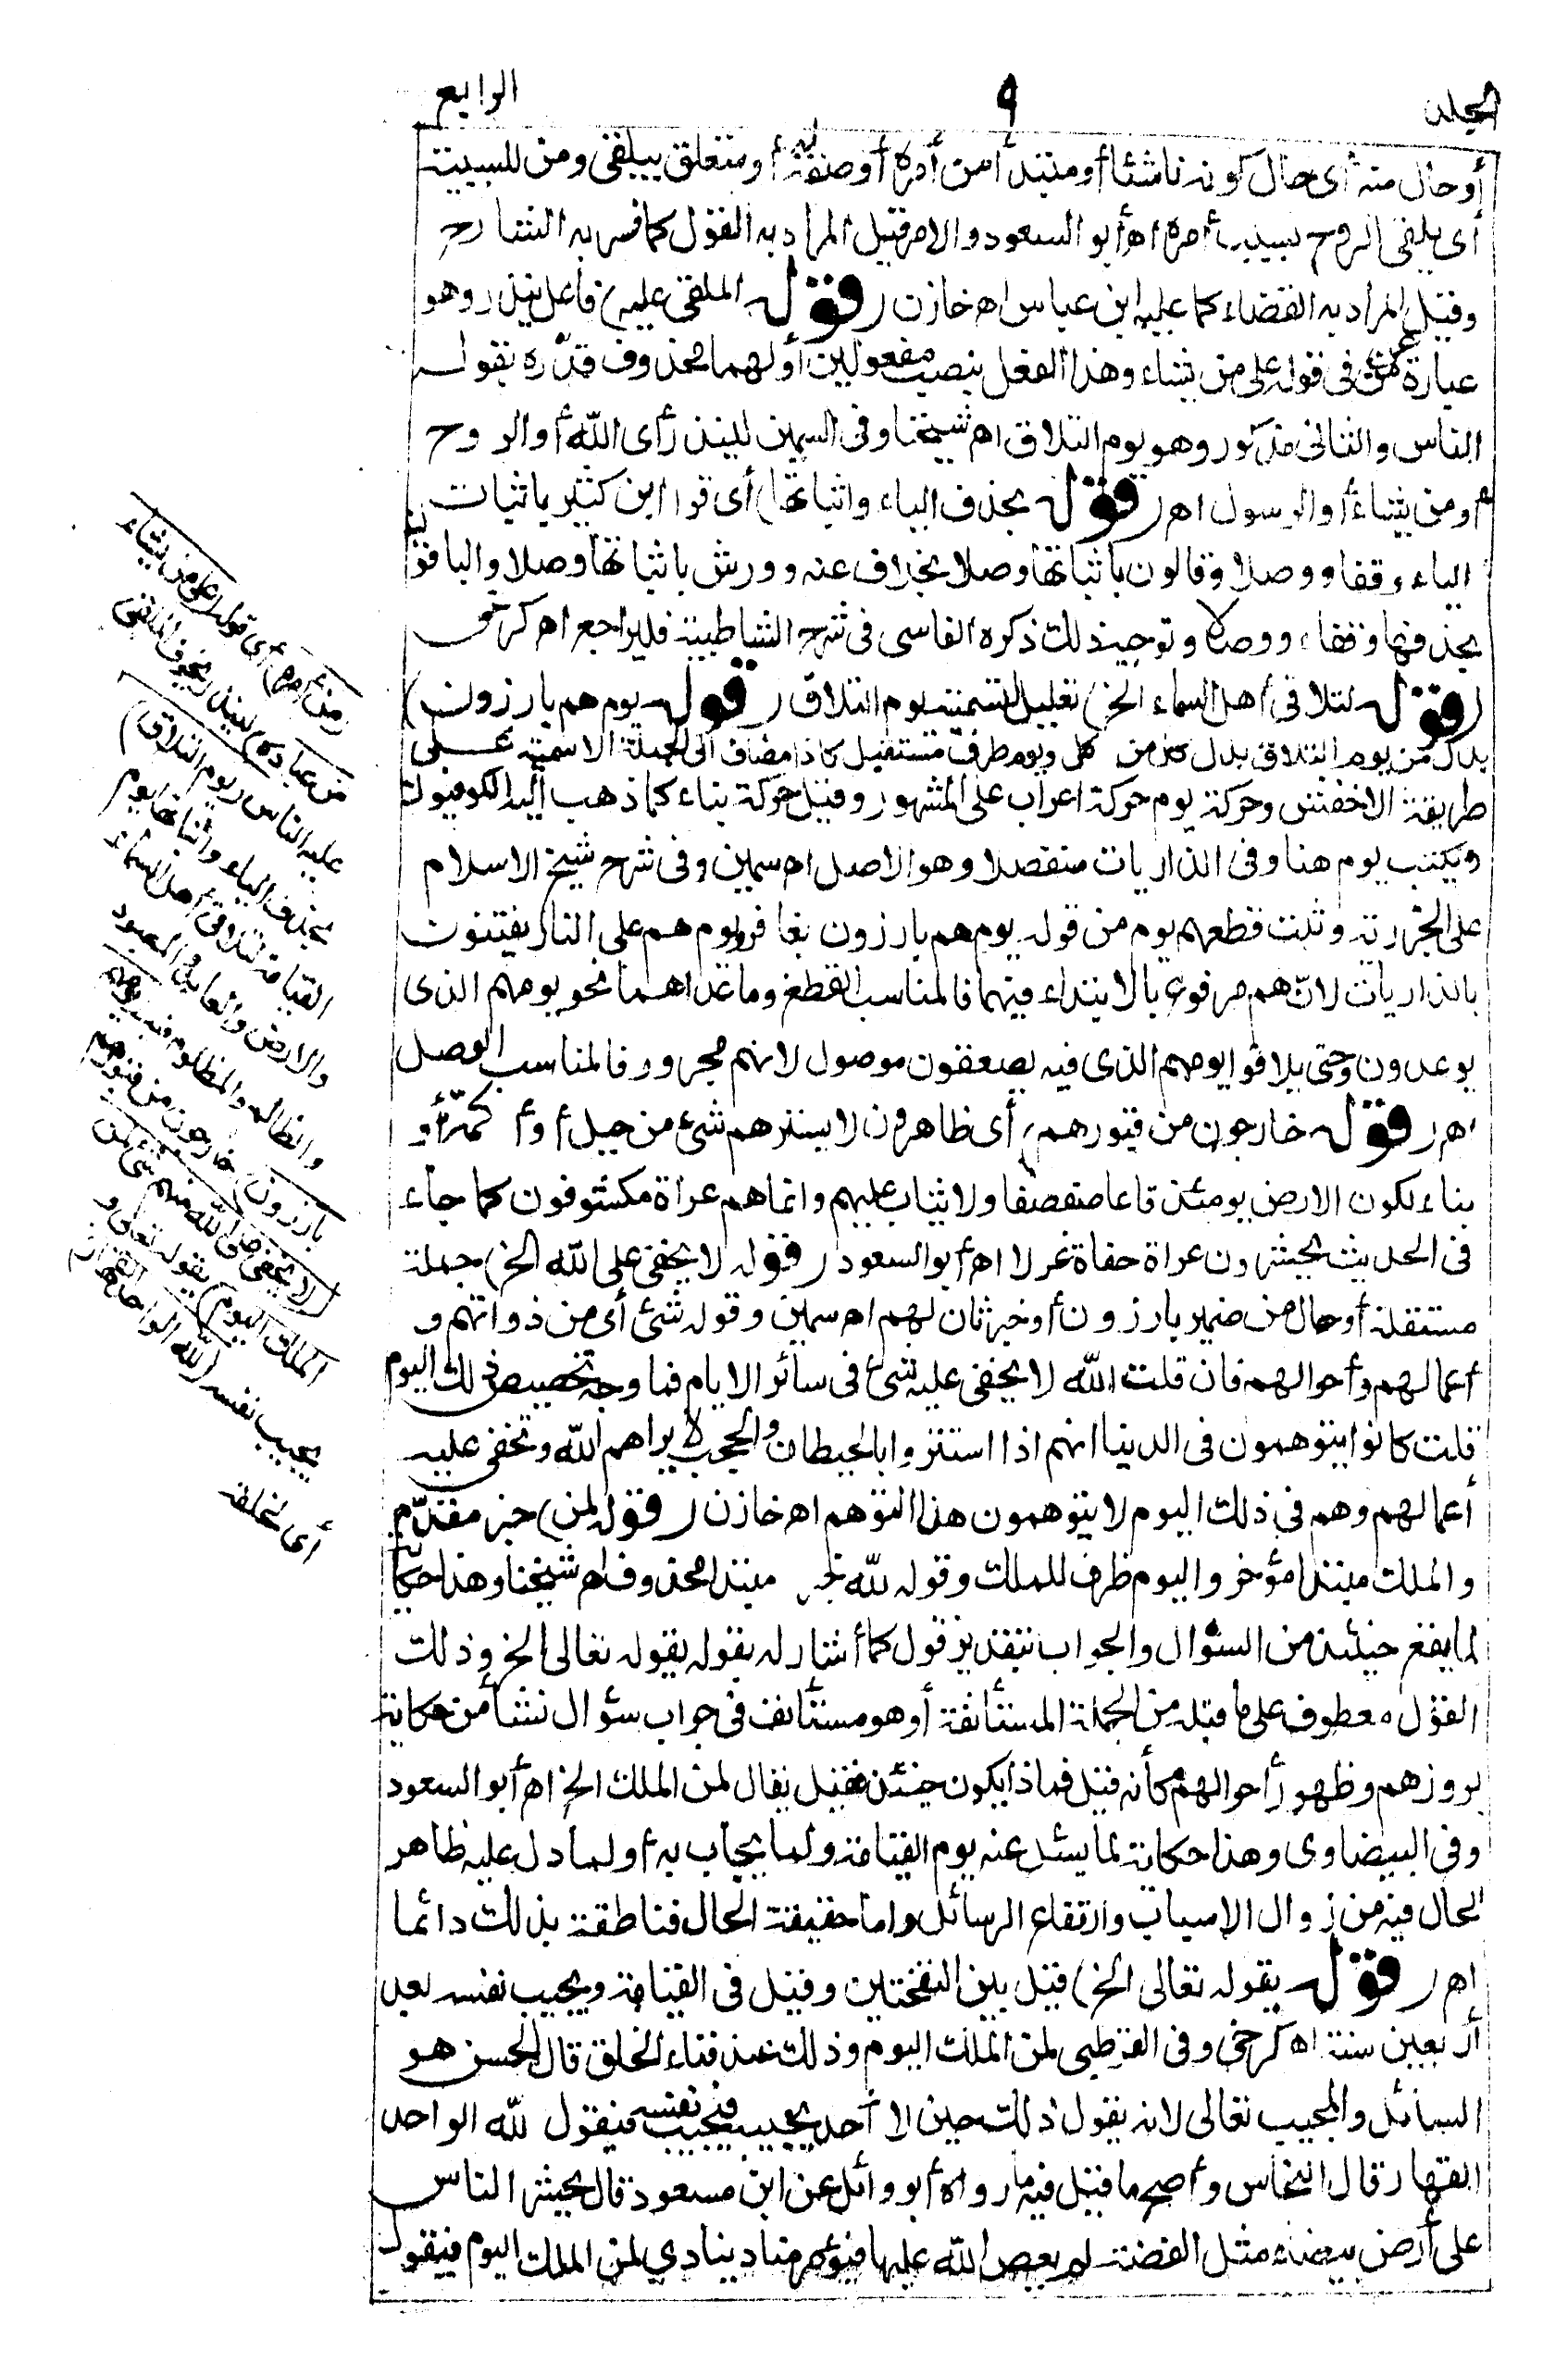 المجلد
٩
الرابع
أو حال منه أى حال كونه ناشئا أو مبتدأ من أمره أو صفة له أو متعلق بيلقى ومن للسببية
أى يلقى الروح بسبب أمره اه أبو السعود والامر قيل المراد به القول كما فسر به الشارح
وقيل المراد به القضاء كما عليه ابن عباس اه خازن (قوله الملقى عليه) فاعل ينذر وهو
عبارة عن من فى قوله على من يشاء وهذا الفعل ينصب مفعولين أولهما محذوف قدّره بقوله
الناس والثانى مذكور وهو يوم التلاق اه شيخنا وفى السمين لينذر أى الله أو الروح
أو من يشاء أو الرسول اه (قوله بحذف الياء واثباتها) أى قرا ابن كثير باثبات
الياء وقفا ووصلا وقالون باثباتها وصلا بخلاف عنه وورش باثباتها وصلا والباقون
بحذفها وقفا ووصلا وتوجيه ذلك ذكره الفاسى فى شرح الشاطبية فليراجع اه كرخى
(قوله لتلاقى أهل السماء الخ) تعليل لتسميته يوم التلاق (قوله يوم هم بارزون)
بدل من يوم التلاق بدل كل من كل ويوم ظرف مستقبل كاذا مضاف الى الجملة الاسمية على
طريقة الاخفش وحركة يوم حركة اعراب على المشهور وقيل حركة بناء كما ذهب اليه الكوفيون
ويكتب يوم هنا وفى الذاريات منفصلا وهو الاصل اه سمين وفى شرح شيخ الاسلام
على الجزرية وثبت قطعهم يوم من قوله يوم هم بارزون بغافر ويوم هم على النار يفتنون
بالذاريات لانّ هم مرفوع بالابتداء فيهما فالمناسب القطع وما عداهما نحو يومهم الذى
يوعدون وحتى يلاقوا يومهم الذى فيه يصعقون موصول لانهم مجرور فالمناسب الوصل
اه (قوله خارجون من قبورهم) أى ظاهرون لا يسترهم شئ من جبل أو أكمة أو
بناء لكون الارض يومئذ قاعا صفصفا ولا ثياب عليهم وانماهم عراة مكشوفون كما جاء
فى الحديث يحشرون عراة حفاة غرلا اه أبو السعود (قوله لا يخفى على الله الخ) جملة
مستقلة أو حال من ضمير بارزون أو خبر ثان لهم اه سمين وقوله شئ أى من ذواتهم و
أعمالهم وأحوالهم فان قلت الله لا يخفى عليه شئ فى سائر الايام فما وجه تخصيص ذلك اليوم
قلت كانوا يتوهمون فى الدنيا انهم اذا استتروا بالحيطان والحجب لا يراهم الله وتخفى عليه
أعمالهم وهم فى ذلك اليوم لا يتوهمون هذا التوهم اه خازن (قوله لمن) خبر مقدّم
والملك مبتدا مؤخر واليوم ظرف للملك وقوله لله خبر مبتدا محذوف اه شيخنا وهذا حكاية
لما يقع حينئذ من السؤال والجواب بتقدير قول كما أشار له بقوله يقوله تعالى الخ وذلك
القول معطوف على ما قبله من الجملة المستأنفة أو هو مستأنف فى جواب سؤال نشأ من حكاية
بروزهم وظهور أحوالهم كأنه قيل فماذا يكون حينئذ فقيل يقال لمن الملك الخ اه أبو السعود
وفى البيضاوى وهذا حكاية لما يسئل عنه يوم القيامة ولما يجاب به أو لما دل عليه ظاهر
الحال فيه من زوال الاسباب وارتفاع الرسائل وأما حقيقة الحال فناطقة بذلك دائما
اه (قوله يقوله تعالى الخ) قيل بين النفختين وقيل فى القيامة ويجيب نفسه بعد
أربعين سنة اه كرخى وفى القرطبى لمن الملك اليوم وذلك عند فناء الخلق قال الحسن هو
السائل والمجيب تعالى لانه يقول ذلك حين لا أحد يجيب فيجيب نفسه فيقول لله الواحد
القهار قال النحاس وأصح ما قيل فيه ما رواه أبو وائل عن ابن مسعود قال يحشر الناس
على أرض بيضاء مثل الفضة لم يعص الله عليها فيؤمر مناد ينادي لمن الملك اليوم فيقول
(من أمره) أى قوله (على من يشاء
من عباده) لينذر يخوف الملقى
عليه الناس (يوم التلاق)
بحذف الياء واثباتها يوم
القيامة لتلاقى أهل السماء
والارض والعابد والمعبود
والظالم والمظلوم فيه (يوم هم
بارزون) خارجون من قبورهم
(لا يخفى على الله منهم شئ لمن
الملك اليوم) يقوله تعالى و
يجيب نفسه (لله الواحد القهار)
أى لخلقه